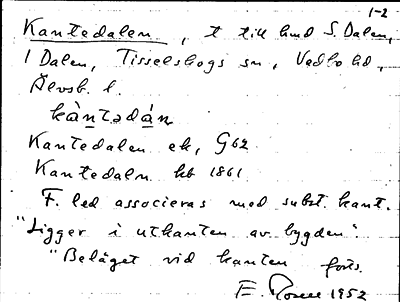 1-2
Kantedalen, t till hmd S. Dalen,
1 Dalen, Tisselskogs sn, Vedbo hd,
Älvsb. l.
kàntədán
Kantedalen ek, G62
Kantedaln hb 1861
F. led associeras med subst. kant.
"Ligger i utkanten av bygden".
"Beläget vid kanten forts.
E. 1952